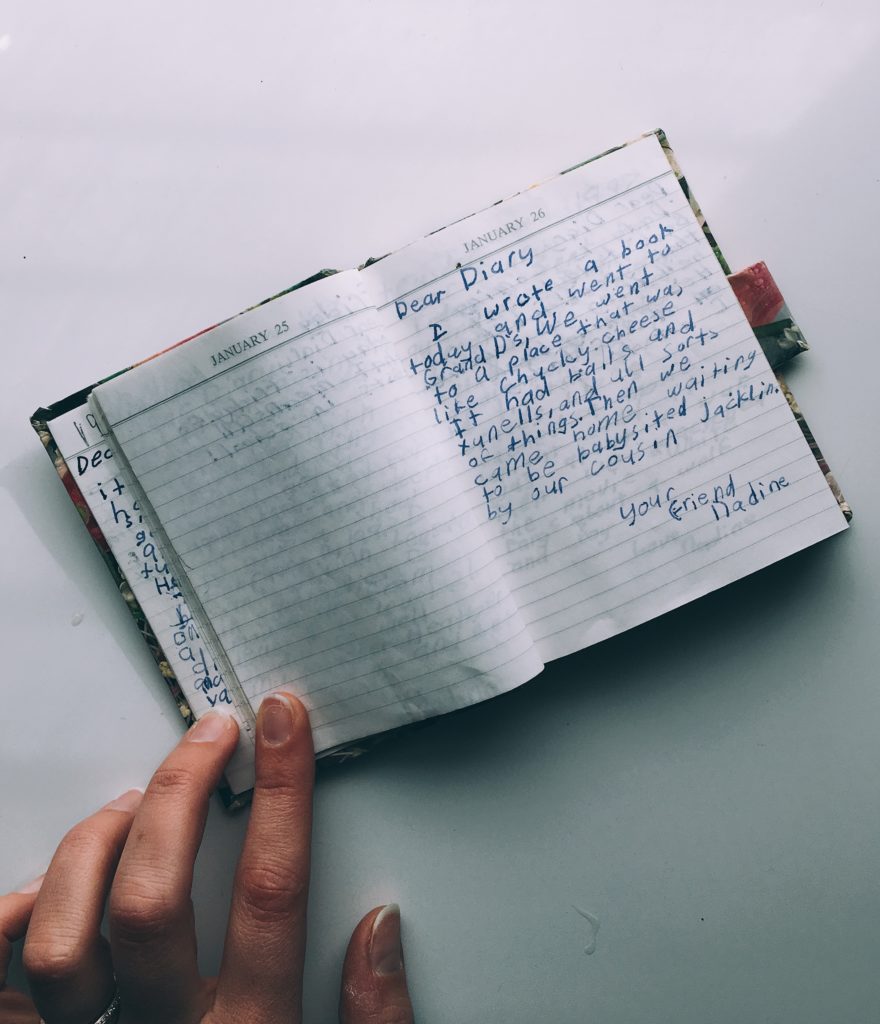 JANUARY 25
JANUARY 26
Dear Diary
I wrote a book
today and went to
Grand D's, We went
to a place that was
like Chucky-cheese,
It had balls and
tunells, and all sorts
of things. Then we
came home waiting
to be babysited jacklin.
by our cousin
your friend
Nadine